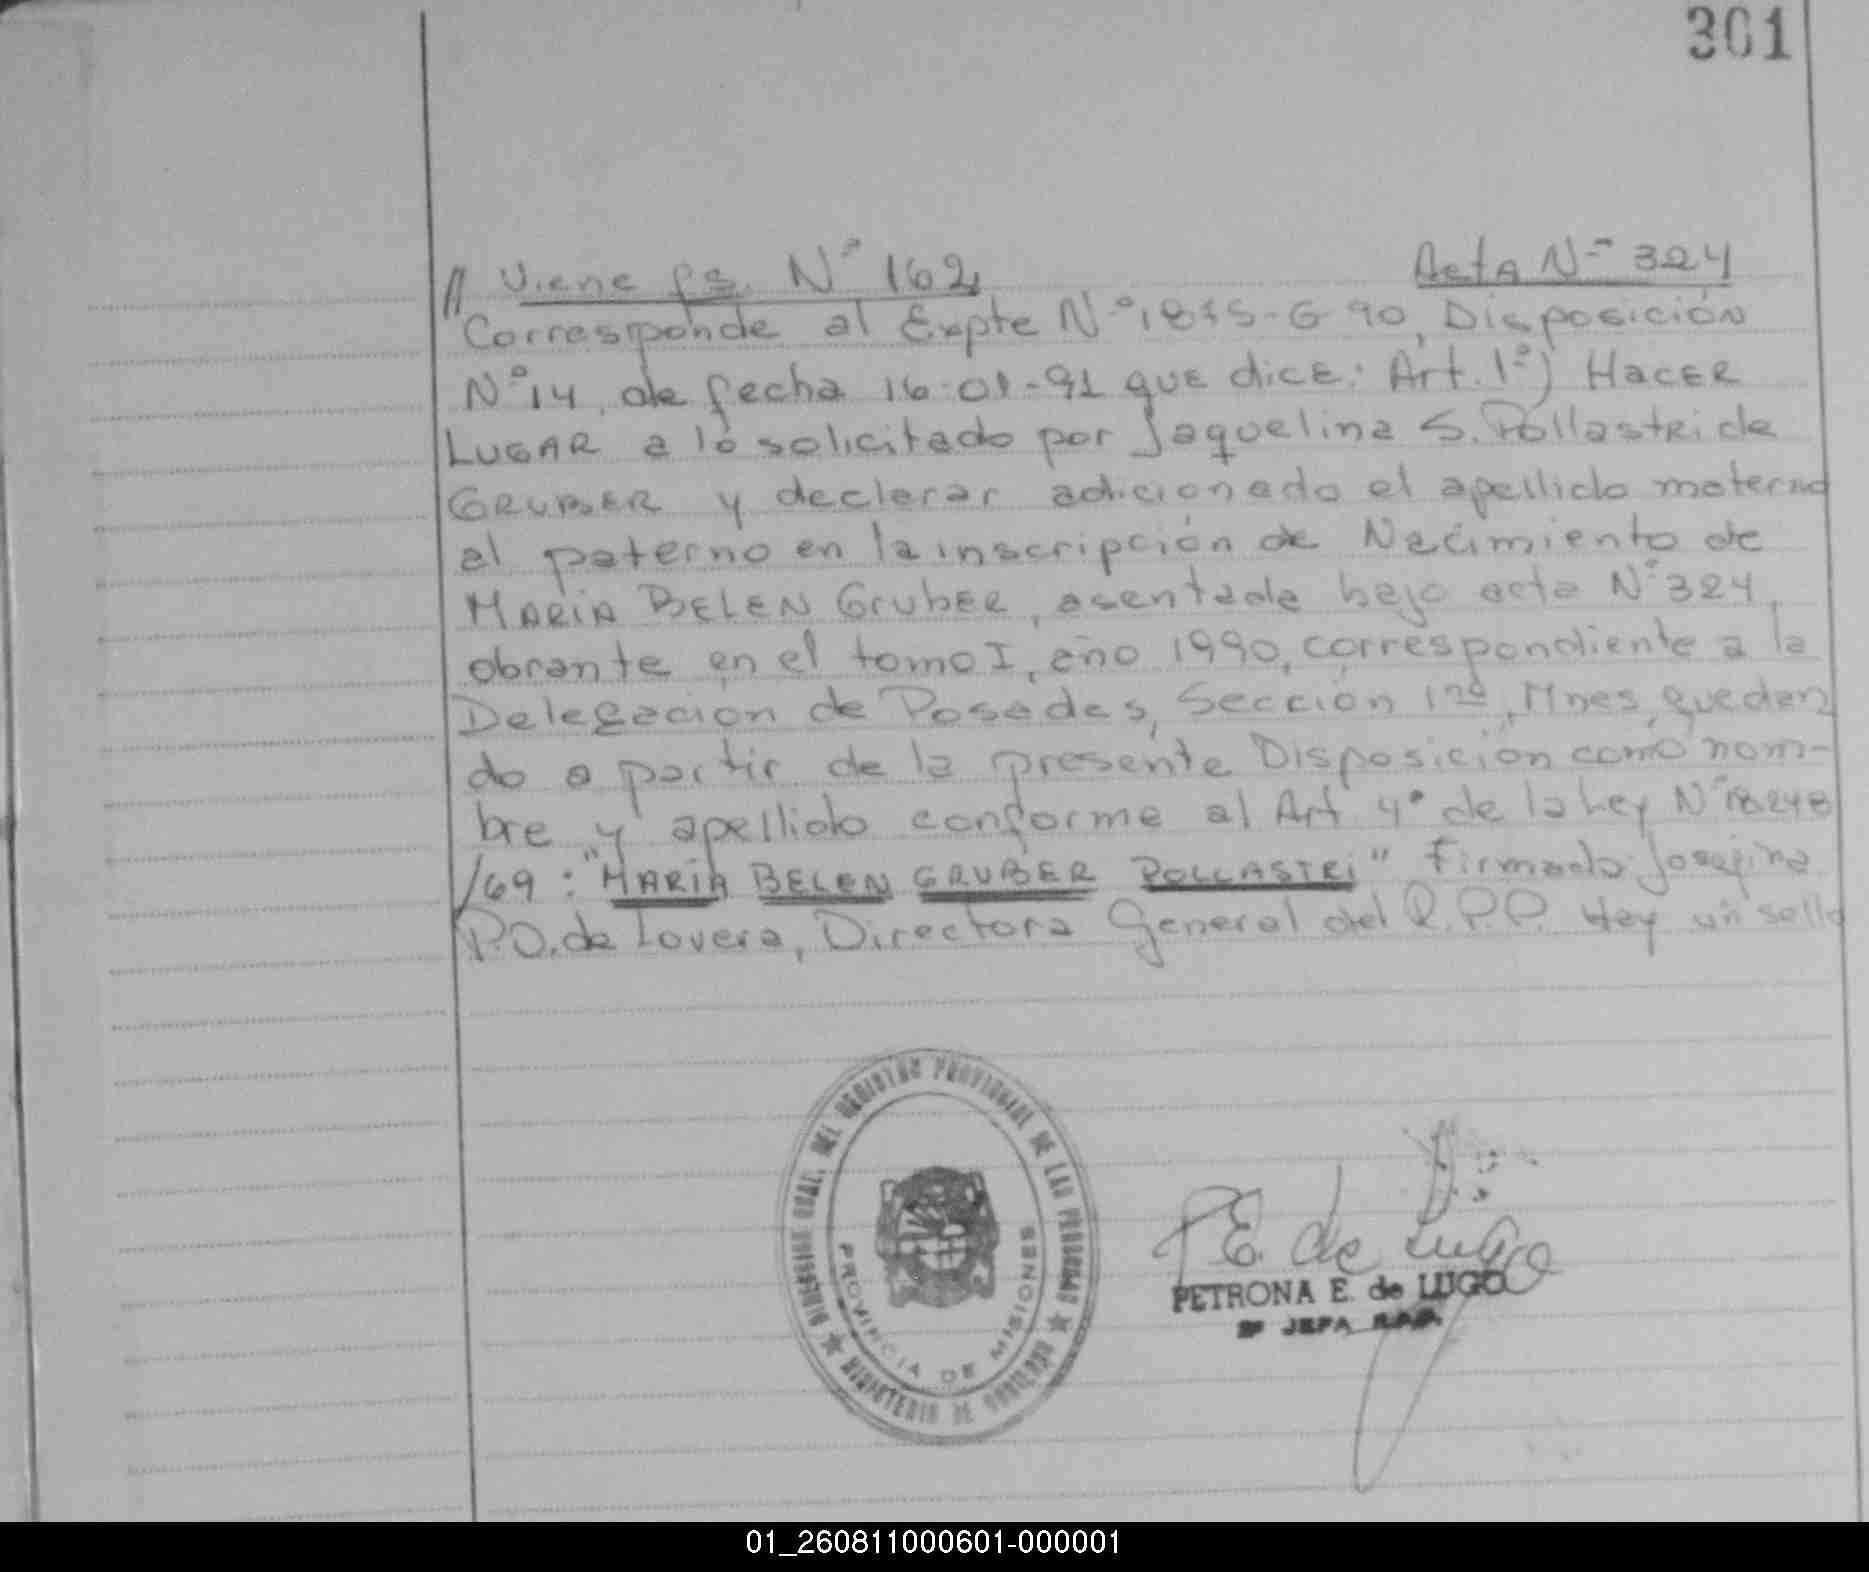 301
// Viene fs. Nº 162 Acta Nº 324
Corresponde al Expte Nº 1835-G-90, Disposición
Nº 14, de fecha 16-01-91 que dice: Art. 1º) HACER
LUGAR a lo solicitado por Jaquelina S. Pollastri de
GRUBER y declarar adicionado el apellido materno
al paterno en la inscripción de Nacimiento de
MARIA BELEN GRUBER, asentada bajo acta Nº 324,
obrante en el tomo I, año 1990, correspondiente a la
Delegación de Posadas, Sección 1ra, Mnes, quedan
do a partir de la presente Disposición como nom-
bre y apellido conforme al Art 4º de la Ley Nº 18248
/69: "MARIA BELEN GRUBER POLLASTRI" Firmado: Josefina
P.O. de Lovera, Directora General del R.P.P. Hay un sello
DIRECCION GRAL. DEL REGISTRO PROVINCIAL DE LAS PERSONAS
PROVINCIA DE MISIONES
MINISTERIO DE GOBIERNO
P E. de Lugo
PETRONA E. de LUGO
JEFA
01_260811000601-000001